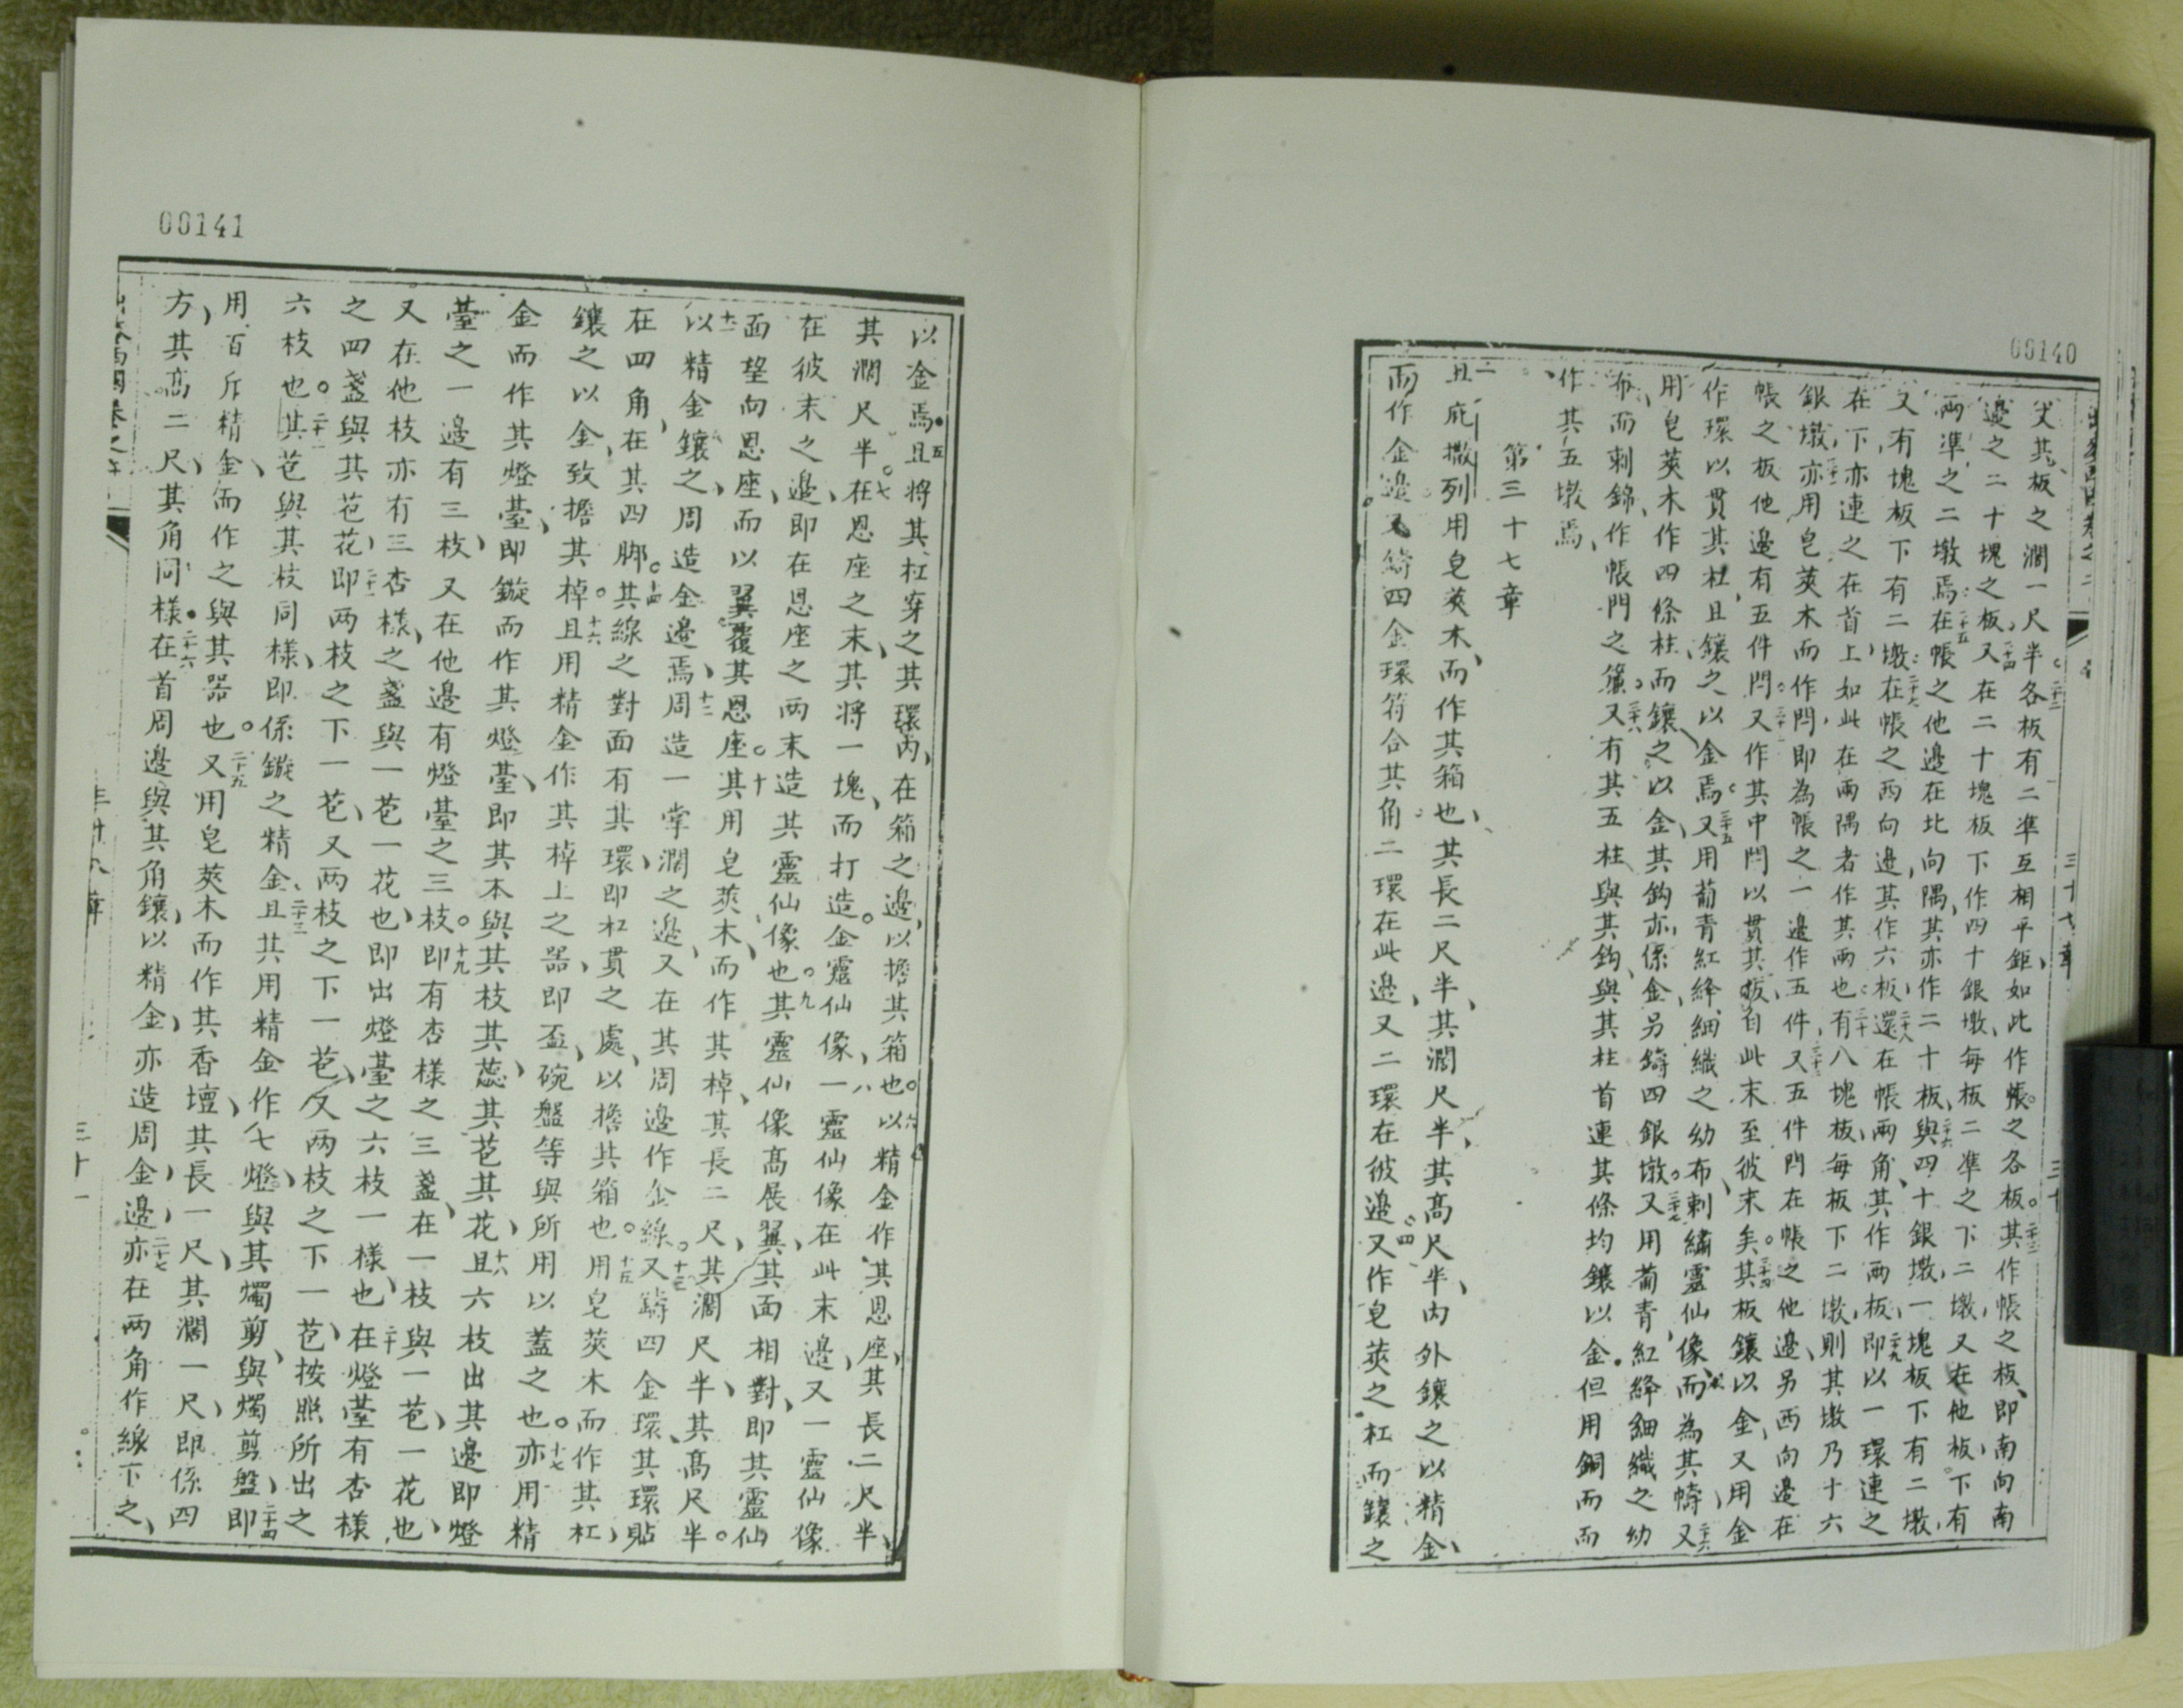 00140
丈其板之濶一尺半二十二各板有二準互相平鉅如此作帳之各板二十三其作帳之板即南向南
邊之二十塊之板二十四又在二十塊板下作四十銀墩每板二準之下二墩又在他板下有
兩準之二墩焉二十五在帳之他邊在北向隅其亦作二十板二十六與四十銀墩一塊板下有二墩
又有塊板下有二墩二十七在帳之西向邊其作六板二十八還在帳兩角其作兩板二十九即以一環連之
在下亦連之在首上如此在兩隅者作其兩也三十有八塊板每板下二墩則其墩乃十六
銀墩三十一亦用皂莢木而作閂即為帳之一邊作五件三十二又五件閂在帳之他邊另西向邊在
帳之板他邊有五件閂三十三又作其中閂以貫其板自此末至彼末矣三十四其板鑲以金又用金
作環以貫其杠且鑲之以金焉三十五又用葡青紅絳細織之幼布刺繡靈仙像而為其幬三十六又
用皂莢木作四條柱而鑲之以金其鈎亦係金另鑄四銀墩三十七又用葡青紅絳細織之幼
布而刺錦作帳門之簾三十八又有其五柱與其鈎與其柱首連其條均鑲以金但用銅而
作其五墩焉
第三十七章
一且庇撒列用皂莢木而作其箱也其長二尺半其濶尺半其高尺半二內外鑲之以精金
而作金邊三又鑄四金環符合其角二環在此邊又二環在彼邊四又作皂莢之杠而鑲之
三十七章
三十
00141
以金焉五且將其杠穿之其環內在箱之邊以擔其箱也六以精金作其恩座其長二尺半
其濶尺半七在恩座之末其將一塊而打造金靈仙像八一靈仙像在此末邊又一靈仙像
在彼末之邊即在恩座之兩末造其靈仙像也九其靈仙像高展翼其面相對即其靈仙
面望向恩座而以翼覆其恩座十其用皂莢木而作其棹其長二尺其濶尺半其高尺半
十一以精金鑲之周造金邊焉十二周造一掌濶之邊又在其周邊作金線十三又鑄四金環其環貼
在四角在其四腳十四其線之對面有其環即杠貫之處以擔其箱也十五用皂莢木而作其杠
鑲之以金致擔其棹十六且用精金作其棹上之器即盃碗盤等與所用以蓋之也十七亦用精
金而作其燈臺即鏇而作其燈臺即其本與其枝其蕊其苞其花十八且六枝出其邊即燈
臺之一邊有三枝又在他邊有燈臺之三枝十九即有杏樣之三盞在一枝與一苞一花也
又在他枝亦有三杏樣之盞與一苞一花也即出燈臺之六枝一樣也二十在燈臺有杏樣
之四盞與其苞花二十一即兩枝之下一苞又兩枝之下一苞又兩枝之下一苞按照所出之
六枝也二十二其苞與其枝同樣即係鏇之精金二十三且其用精金作七燈與其燭剪與燭剪盤二十四即
用百斤精金而作之與其器也二十五又用皂莢木而作其香壇其長一尺其濶一尺即係四
方其高二尺其角同樣二十六在首周邊與其角鑲以精金亦造周金邊二十七亦在兩角作線下之
三十一